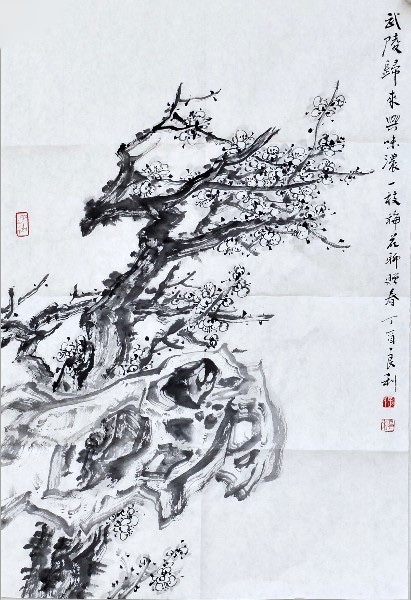 武陵歸來興味濃一枝梅花聊贈春丁酉良利